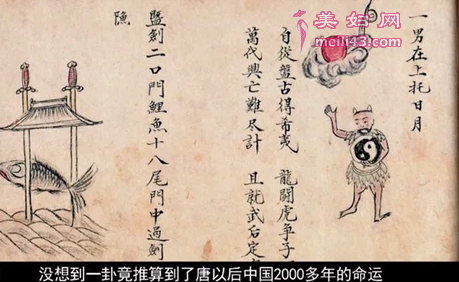 美妇网
meifi43.com
一男在上托日月
自從盤古得希夷 龍鬪虎爭
萬代興亡難尽計 且就武后定
劍二口門鯉魚十八尾門中過劍
没想到一卦竟推算到了唐以后中国2000多年的命运